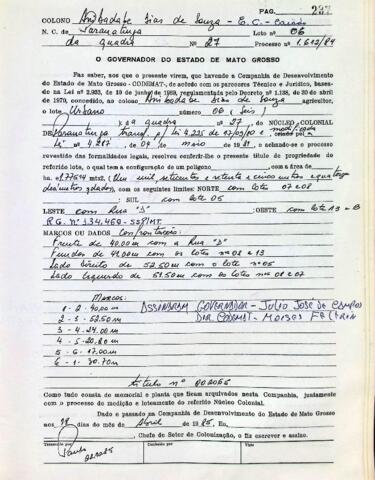 PAG. 237
COLONO Andbadabe Dias de Souza - E. C. - Casado
N. C. de Paranatinga Lote nº 06
da quadra Nº 27 Processo nº 1.612/84
O GOVERNADOR DO ESTADO DE MATO GROSSO
Faz saber, aos que o presente virem, que havendo a Companhia de Desenvolvimento
do Estado de Mato Grosso - CODEMAT-, de acordo com os pareceres Técnico e Jurídico, bases-
da na Lei nº 2.933, de 19 de junho de 1969, regulamentada pelo Decreto nº 1.138, de 20 de
abril de 1970, concedido, ao colono Andbadabe Dias de Souza agricultor,
o lote Urbano 06 (seis)
da quadra nº 27, do NÚCLEO COLONIAL
de Paranatinga transf. p/ Lei 4.225 de 07/09/80 e modificada
Lei nº 4.217, de 04 de maio de 1981, e achando-se o processo
revestido das formalidades legais, resolveu conferir-lhe o presente título de propriedade do
referido lote, o qual tem a configuração de um polígono, com a área de
(Um mil, setecentos e setenta e cinco metros e quatorze
decímetros quadrados), com os seguintes limites: NORTE com lotes 07 e 08
: SUL com lote 05
LESTE com Rua "D" : OESTE com lote 13 - B
R.G. nº 134.469 - SSP/MT.
MARCOS OU DADOS Confrontações:
Frente de 40,00m com a Rua "D"
Fundos de 44,00m com os lotes nºs 02 e 13
Lado Direito de 52,50m com o lote nº 05
Lado Esquerdo de 51,50m com os lotes nºs 08 e 07
Marcos:
1 - 2 - 40,00m ASSINARAM GOVERNADOR - JULIO JOSÉ DE CAMPOS
2 - 3 - 52,50m DIR. CODEMAT - MOISES FELTRIN
3 - 4 - 24,00m
4 - 5 - 20,80m
5 - 6 - 17,00m
6 - 1 - 30,70m
título nº 002055
Como tudo consta do memorial e planta que ficam arquivados nesta Companhia, juntamente
com o processo de medição e loteamento do referido Núcleo Colonial.
Dado e passado na Companhia de Desenvolvimento do Estado de Mato Grosso
aos 18 dias do mês de Abril de 1985. Eu,
, Chefe do Setor de Colonização, o fiz escrever e assino.
Transcrito por
Conferido por
Visto